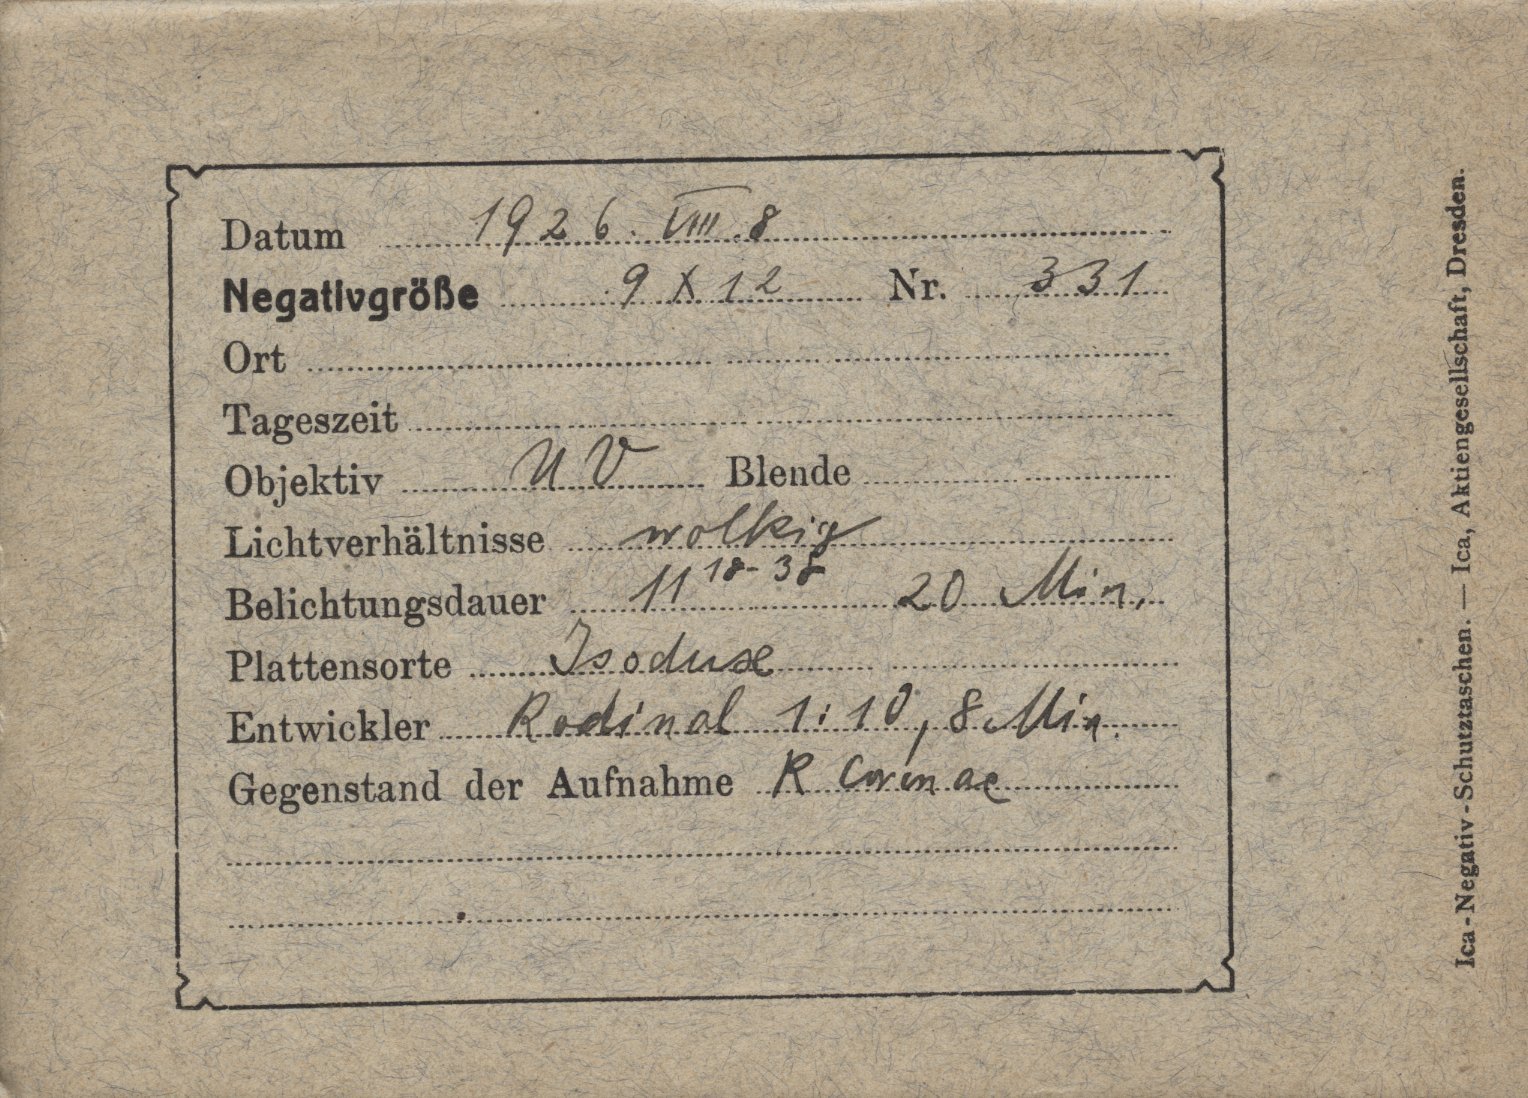 Datum 1926. VIII. 8
Negativgröße 9 X 12 Nr. 331
Ort
Tageszeit
Objektiv UV Blende
Lichtverhältnisse wolkig
Belichtungsdauer 11 18-38 20 Min.
Plattensorte Isoduxe
Entwickler Rodinal 1:10, 8 Min.
Gegenstand der Aufnahme R Coronae
Ica-Negativ-Schutztaschen. — Ica, Aktiengesellschaft, Dresden.